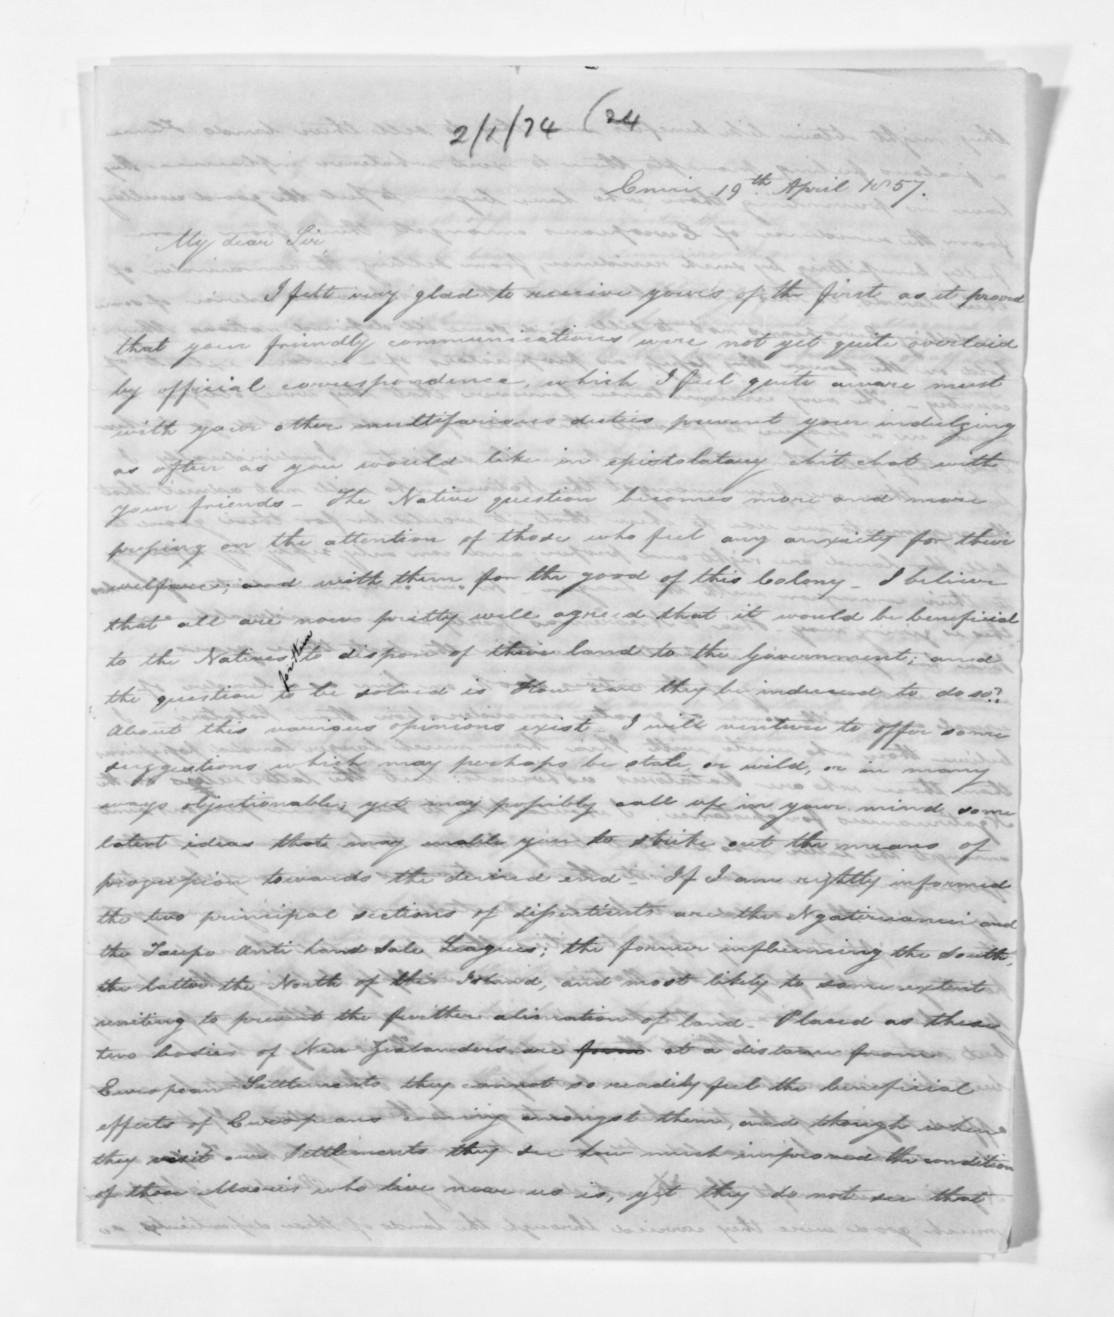 2/1/74 (24
Omiri 19th April 1857.
My dear Sir
I felt very glad to receive yours of the first as it proved
that your friendly communications were not yet quite overlaid
by official correspondence, which I feel quite aware must
with your other multifarious duties prevent your indulging
as often as you would like in epistolatory chit chat with
your friends - The Native question becomes more and more
pressing on the attention of those who feel any anxiety for their
welfare; and with them for the good of this Colony - I believe
that all are now pretty well agreed that it would be beneficial
to the Natives for them to dispose of their land to the Government; and
the question to be solved is How can they be induced to do so?
About this various opinions exist - I will venture to offer some
suggestions which may perhaps be stale, or wild, or in many
ways objectionable; yet may possibly call up in your mind some
latent ideas that may enable you to strike out the means of
progression towards the desired end - If I am rightly informed
the two principal sections of dissentients are the Ngatiruanui and
the Taupo Anti Land Sale Leagues; the former influencing the South,
the latter the North of this Island, and most likely to some extent
uniting to prevent the further alienation of land - Placed as these
two bodies of New Zealanders are from at a distance from
European Settlements they cannot so readily feel the beneficial
effects of Europeans residing amongst them, and though when
they visit our Settlements they see how much improved the condition
of those Maories who live near us is, yet they do not see that